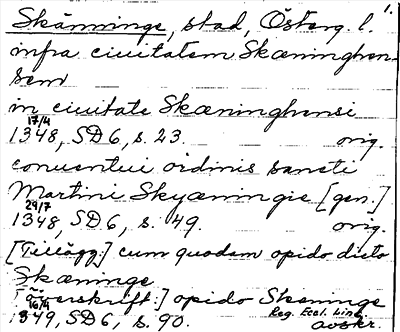 1.
Skänninge, stad, Österg. l.
infra ciuitatem Skæninghen-
sem
in ciuitate Skæninghensi
17/4
1348, SD 6, s. 23. orig.
conuentui ordinis sancti
Martini Skyæningie [gen.]
29/7
1348, SD 6, s. 49. orig.
[Tillägg:] cum quodam opido dicto
Skæninge
[Överskrift:] opido Skeninge
16/4 Reg. Eccl. Linc.
1349, SD 6, s. 90. avskr.